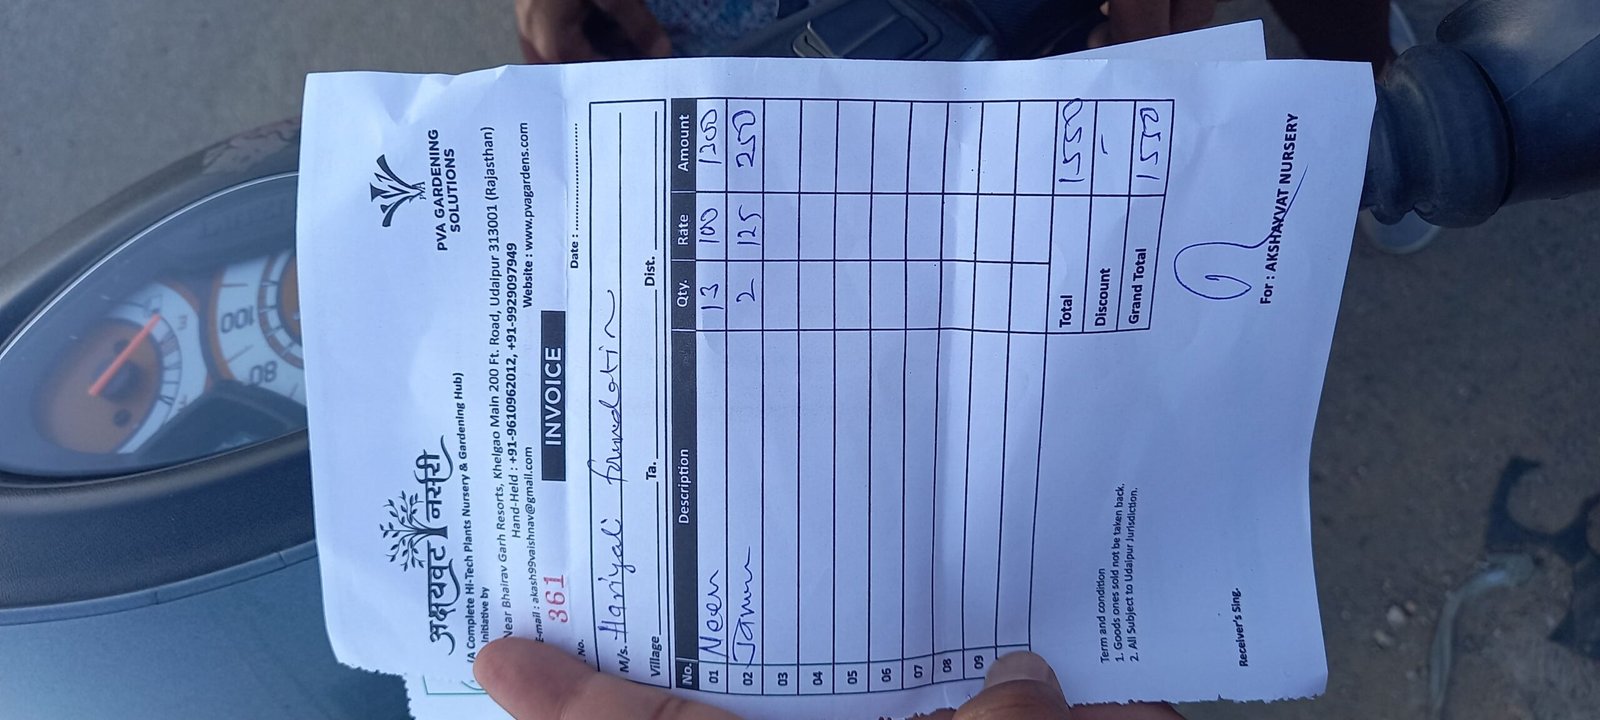 अक्षयवट नर्सरी
PVA
PVA GARDENING
SOLUTIONS
(A Complete Hi-Tech Plants Nursery & Gardening Hub)
Initiative by
Near Bhairav Garh Resorts, Khelgao Main 200 Ft. Road, Udaipur 313001 (Rajasthan)
Hand-Held : +91-9610962012, +91-9929097949
E-mail : akash99vaishnav@gmail.com Website : www.pvagardens.com
No. 361 INVOICE Date :
M/s. Hariyali foundation
Village Ta. Dist.
No. Description Qty. Rate Amount
01 Neem 13 100 1300
02 Jamun 2 125 250
03
04
05
06
07
08
09
Total 1550
Discount -
Grand Total 1550
Term and condition
1. Goods ones sold not be taken back.
2. All Subject to Udaipur Jurisdiction.
Receiver's Sing.
For : AKSHAYVAT NURSERY
80
100
E